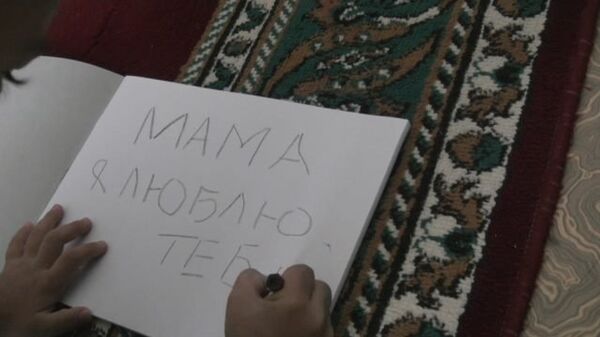 МАМА
Я ЛЮБЛЮ
ТЕБ